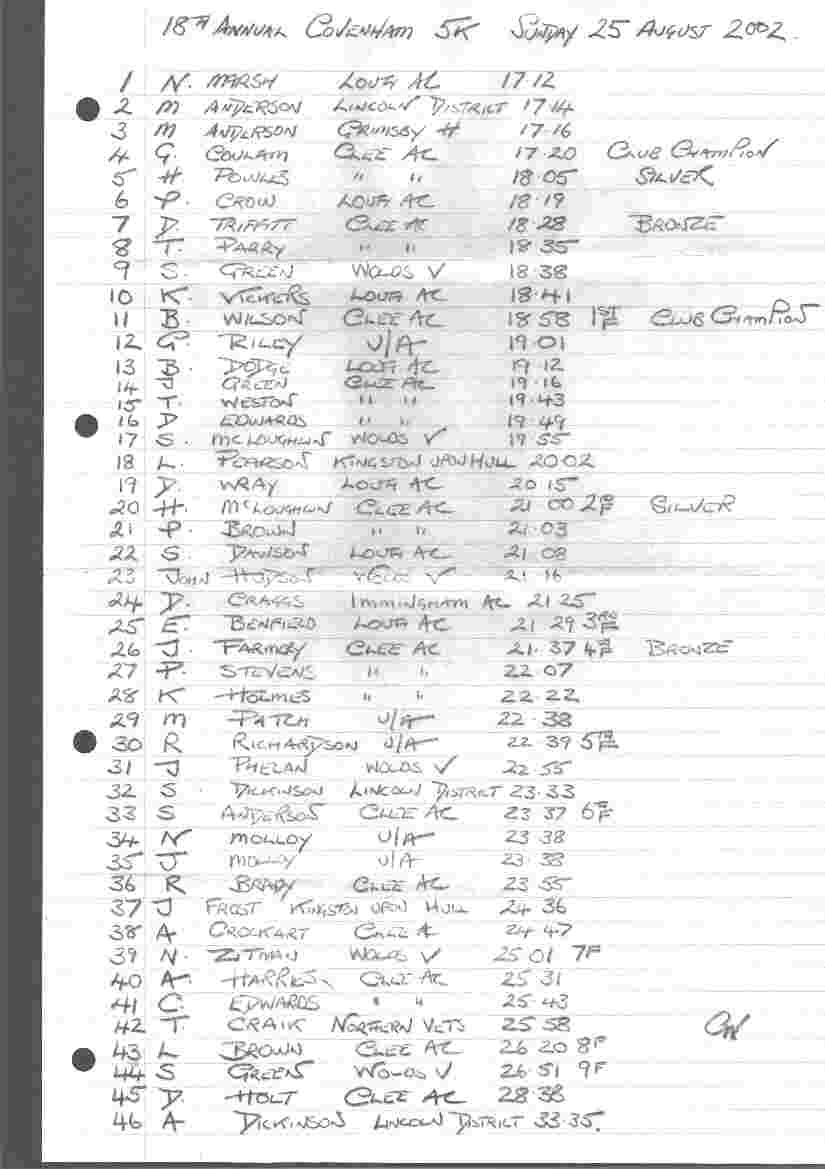 18TH ANNUAL COVENHAM 5K SUNDAY 25 AUGUST 2002.
1 N. MARSH LOUTH AC 17·12
2 M ANDERSON LINCOLN DISTRICT 17·14
3 M ANDERSON GRIMSBY H 17·16
4 G. COULAM CLEE AC 17·20 CLUB CHAMPION
5 H. POWLES " " 18·05 SILVER
6 P. CROW LOUTH AC 18·19
7 D. TRIFFITT CLEE AC 18·28 BRONZE
8 T. PARRY " " 18·35
9 S. GREEN WOLDS V 18·38
10 K. VICKERS LOUTH AC 18·41
11 B. WILSON CLEE AC 18 58 1ST F CLUB CHAMPION
12 G. RILEY U/A 19·01
13 B. DODGE LOUTH AC 19 12
14 J GREEN CLEE AC 19·16
15 T. WESTON " " 19·43
16 D EDWARDS " " 19·49
17 S. McLOUGHLIN WOLDS V 19·55
18 L. PEARSON KINGSTON UPON HULL 20 02
19 D. WRAY LOUTH AC 20 15
20 H. McLOUGHLIN CLEE AC 21 00 2ND F SILVER
21 P. BROWN " " 21·03
22 S. DAWSON LOUTH AC 21 08
23 JOHN HUDSON V 21 16
24 D. CRAGGS IMMINGHAM AC 21 25
25 E. BENFIELD LOUTH AC 21 29 3RD F
26 J. FARMERY CLEE AC 21·37 4TH F BRONZE
27 P. STEVENS " " 22 07
28 K HOLMES " " 22·22
29 M PATCH U/A 22·38
30 R RICHARDSON U/A 22 39 5TH F
31 J PHELAN WOLDS V 22·55
32 S DICKINSON LINCOLN DISTRICT 23·33
33 S ANDERSON CLEE AC 23 37 6TH F
34 N MOLLOY U/A 23·38
35 J MOLLOY U/A 23·38
36 R BRADY CLEE AC 23 55
37 J FROST KINGSTON UPON HULL 24 36
38 A CROCKART CLEE A 24 47
39 N. ZITMAN WOLDS V 25 01 7F
40 A. HARRIES CLEE AC 25 31
41 C. EDWARDS " " 25·43
42 T. CRAIK NORTHERN VETS 25 58
43 L BROWN CLEE AC 26 20 8F
44 S GREEN WOLDS V. 26·51 9F
45 D. HOLT CLEE AC 28·38
46 A DICKINSON LINCOLN DISTRICT 33·35.